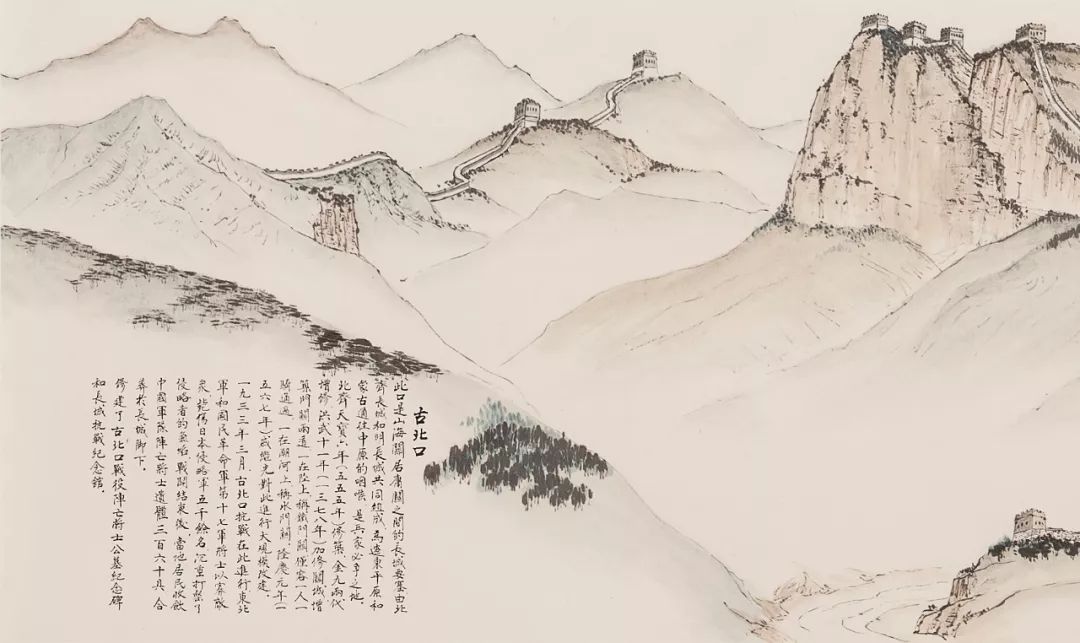 古北口
此口是山海關居庸關之間的長城要塞由北
齊長城和明長城共同組成,為遼東平原和
蒙古通往中原的咽喉,是兵家必爭之地。
北齊天寶六年(五五五年)修築,金元兩代
增修,洪武十一年(一三七八年)加修關城,增
築門關兩道,一在陸上,稱鐵門關,僅容一人一
騎通過,一在潮河上,稱水門關,隆慶元年(一
五六七年)戚繼光對此進行大規模改建。
一九三三年三月,古北口抗戰在此進行,東北
軍和國民革命軍第十七軍將士以寡敵
眾,斃傷日本侵略軍五千餘名,沉重打擊了
侵略者的氣焰,戰鬥結束後,當地居民收斂
中國軍隊陣亡將士遺體三百六十具,合
葬於長城腳下。
修建了古北口戰役陣亡將士公墓紀念碑
和長城抗戰紀念館。